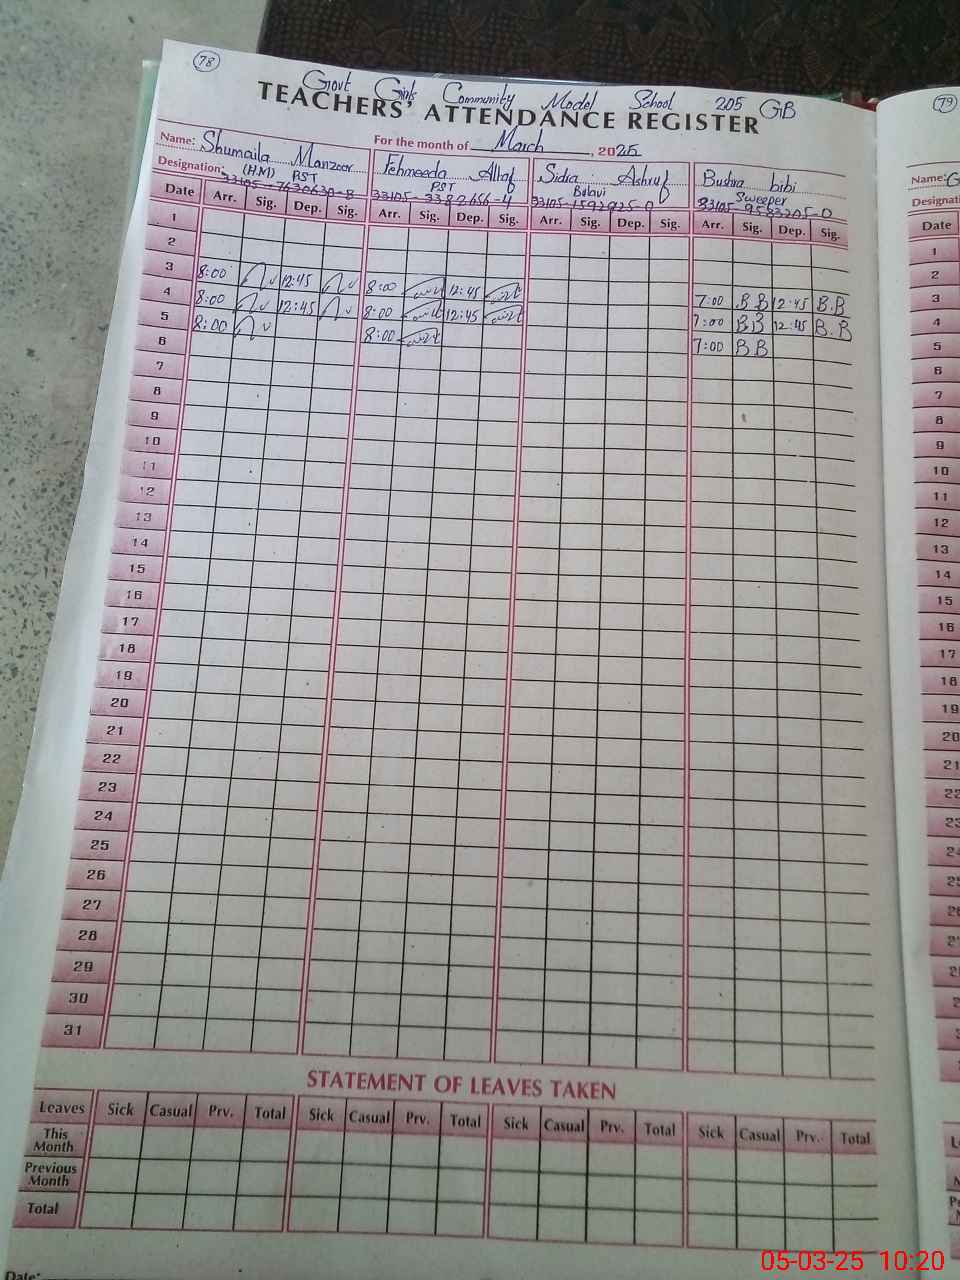 78
Govt Girls Community Model School 205 GB
TEACHERS' ATTENDANCE REGISTER
79
For the month of March, 2025
Name: Shumaila Manzoor Fehmeeda Altaf Sidra Ashraf Bushra bibi
Designation: (HM) PST PST Balavi Sweeper
33105-7630630-8 33105-3382656-4 33105-1592925-0 33105-9583205-0
Date Arr. Sig. Dep. Sig. Arr. Sig. Dep. Sig. Arr. Sig. Dep. Sig. Arr. Sig. Dep. Sig.
1
2
3 8:00 12:45 8:00 12:45 7:00 B B 12:45 B.B
4 8:00 12:45 8:00 12:45 7:00 BB 12:45 B.B
5 8:00 8:00 7:00 BB
6
7
8
9
10
11
12
13
14
15
16
17
18
19
20
21
22
23
24
25
26
27
28
29
30
31
STATEMENT OF LEAVES TAKEN
Leaves Sick Casual Prv. Total Sick Casual Prv. Total Sick Casual Prv. Total Sick Casual Prv. Total
This Month
Previous Month
Total
Date:
Name: G
Designati
Date
1
2
3
4
5
6
7
8
9
10
11
12
13
14
15
16
17
18
19
20
21
22
23
05-03-25 10:20